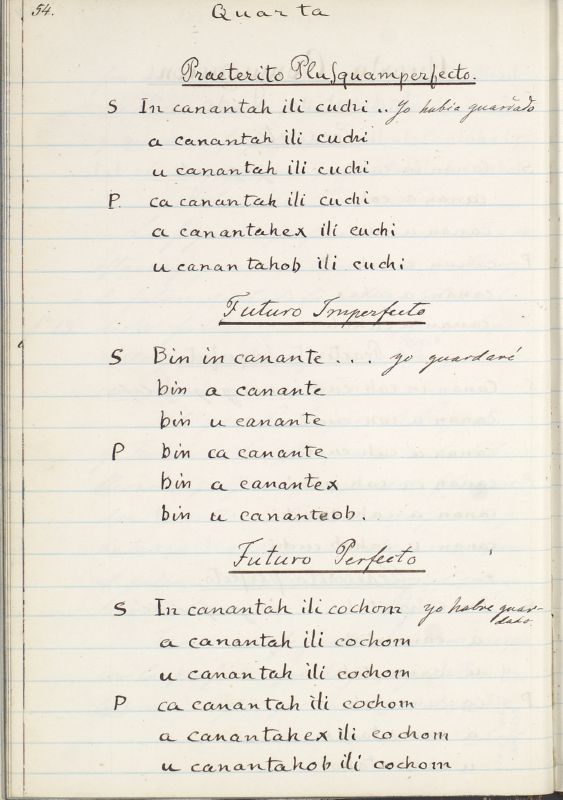 54.
Quarta
Praeterito Plusquamperfecto.
S In canantah ili cuchi .. Yo habia guardado
a canantah ili cuchi
u canantah ili cuchi
P. ca canantah ili cuchi
a canantahex ili cuchi
u canantahob ili cuchi
Futuro Imperfecto
S Bin in canante ... yo guardaré
bin a canante
bin u canante
P bin ca canante
bin a canantex
bin u cananteob.
Futuro Perfecto
S In canantah ili cochom yo habre guar-
dado.
a canantah ili cochom
u canantah ili cochom
P ca canantah ili cochom
a canantahex ili cochom
u canantahob ili cochom